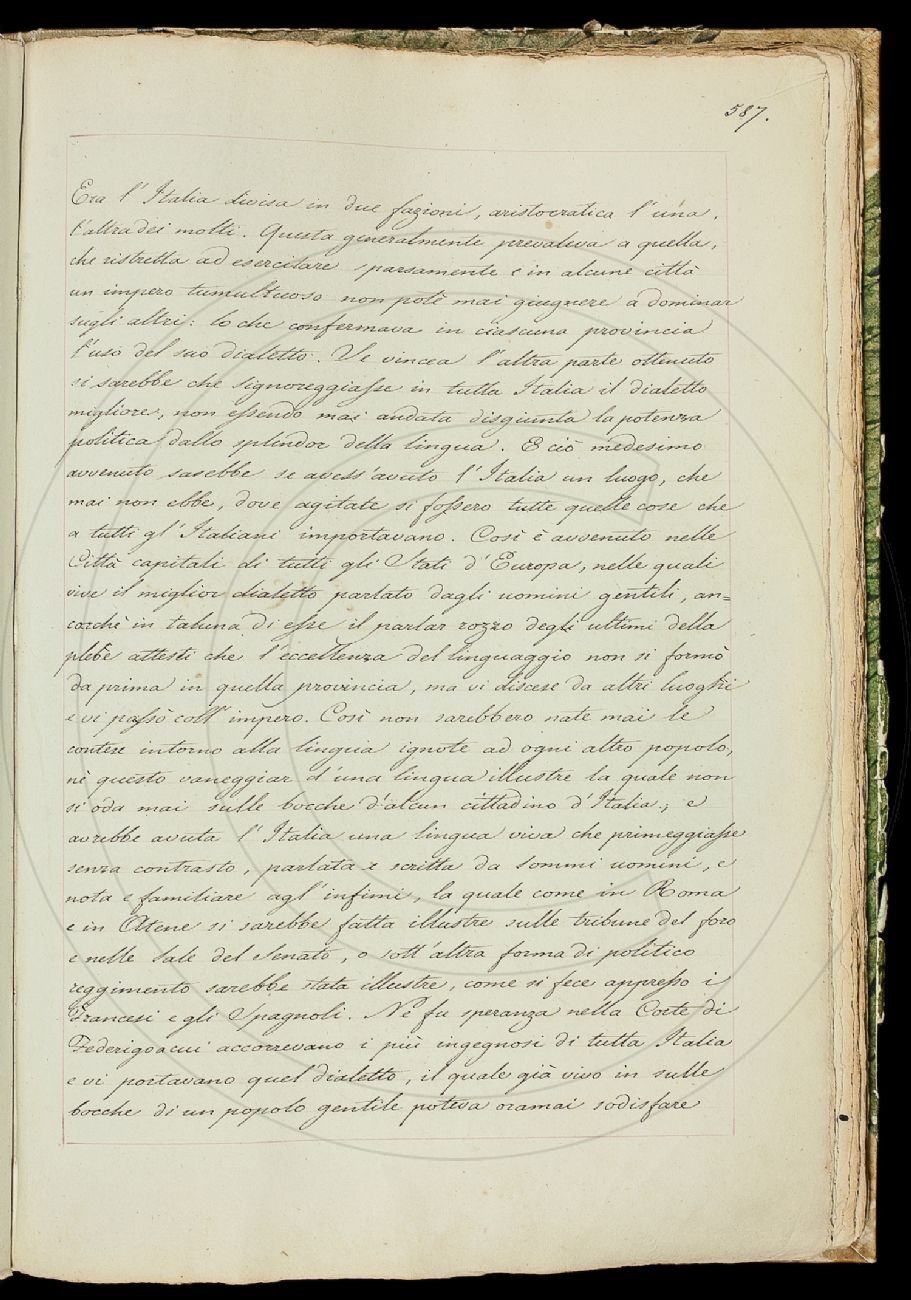 587.
Era l'Italia divisa in due fazioni, aristocratica l'una,
l'altra dei molti. Questa generalmente prevaleva a quella,
che ristretta ad esercitare sparsamente e in alcune città
un impero tumultuoso non potè mai giugnere a dominar
sugli altri: lo che confermava in ciascuna provincia
l'uso del suo dialetto. Se vincea l'altra parte ottenuto
si sarebbe che signoreggiasse in tutta Italia il dialetto
migliore, non essendo mai andata disgiunta la potenza
politica dallo splendor della lingua. E ciò medesimo
avvenuto sarebbe se avess'avuto l'Italia un luogo, che
mai non ebbe, dove agitate si fossero tutte quelle cose che
a tutti gl'Italiani importavano. Così è avvenuto nelle
Città capitali di tutti gli Stati d'Europa, nelle quali
vive il miglior dialetto parlato dagli uomini gentili, an=
corchè in taluna di esse il parlar rozzo degli ultimi della
plebe attesti che l'eccellenza del linguaggio non si formò
da prima in quella provincia, ma vi discese da altri luoghi
e vi passò coll'impero. Così non sarebbero nate mai le
contese intorno alla lingua ignote ad ogni altro popolo,
nè questo vaneggiar d'una lingua illustre la quale non
si oda mai sulle bocche d'alcun cittadino d'Italia; e
avrebbe avuta l'Italia una lingua viva che primeggiasse
senza contrasto, parlata e scritta da sommi uomini, e
nota e familiare agl'infimi, la quale come in Roma
e in Atene si sarebbe fatta illustre sulle tribune del foro
e nelle sale del Senato, o sott'altra forma di politico
reggimento sarebbe stata illustre, come si fece appresso i
Francesi e gli Spagnoli. Nè fu speranza nella Corte di
Federigo a cui accorrevano i più ingegnosi di tutta Italia
e vi portavano quel dialetto, il quale già vivo in sulle
bocche di un popolo gentile poteva oramai sodisfare